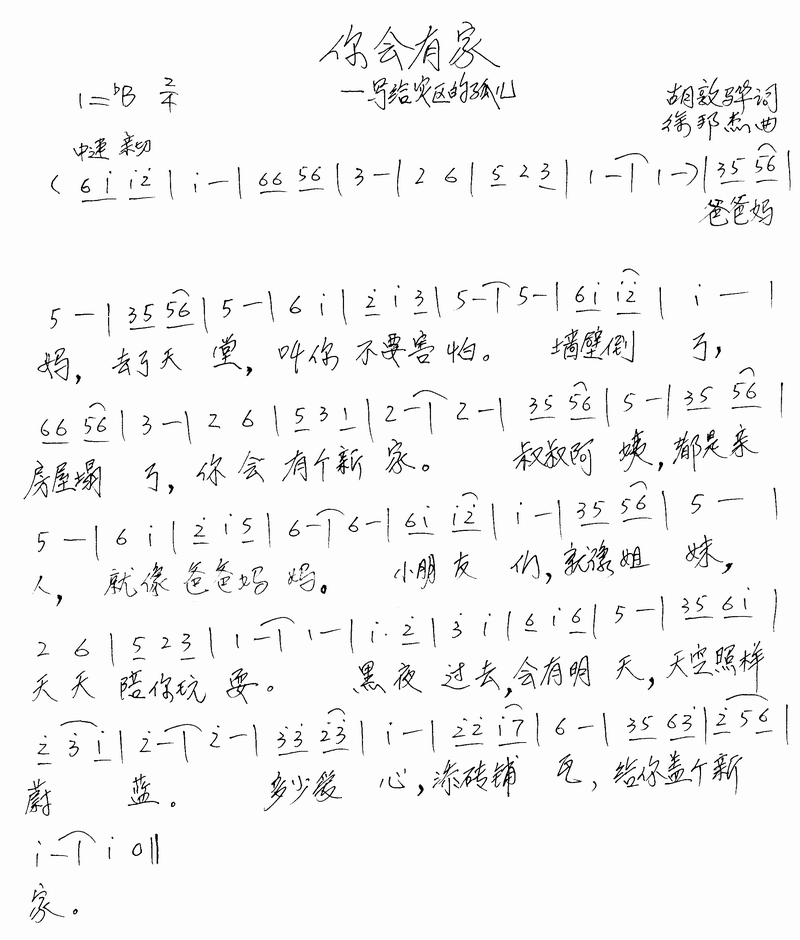 你会有家
—写给灾区的孤儿
1=♭B 2/4
胡敦骅词
徐邦杰曲
中速 亲切
( 6 i̇ i̇ 2̇ | i̇ — | 6 6 5 6 | 3 — | 2 6 | 5 2 3 | 1 — | 1 —) | 3 5 5 6 |
爸爸妈
5 — | 3 5 5 6 | 5 — | 6 i̇ | 2̇ i̇ 3̇ | 5 — | 5 — | 6 i̇ i̇ 2̇ | i̇ — |
妈，去了天 堂，叫你 不要害 怕。 墙壁倒 了，
6 6 5 6 | 3 — | 2 6 | 5 3 1 | 2 — | 2 — | 3 5 5 6 | 5 — | 3 5 5 6 |
房屋塌 了，你 会 有个新 家。 叔叔阿 姨，都是亲
5 — | 6 i̇ | 2̇ i̇ 5 | 6 — | 6 — | 6 i̇ i̇ 2̇ | i̇ — | 3 5 5 6 | 5 — |
人，就像爸爸妈 妈。 小朋友 们，就像姐 妹，
2 6 | 5 2 3 | 1 — | 1 — | i̇. 2̇ | 3̇ i̇ | 6 i̇ 6 | 5 — | 3 5 6 i̇ |
天 天 陪你玩 耍。 黑夜 过去，会有明 天，天空照样
2̇ 3̇ i̇ | 2̇ — | 2̇ — | 3̇ 3̇ 2̇ 3̇ | i̇ — | 2̇ 2̇ i̇ 7 | 6 — | 3 5 6 3̇ | 2̇ 5 6 |
蔚 蓝。 多少爱 心，添砖铺 瓦，给你盖个新
i̇ — | i̇ 0 ‖
家。